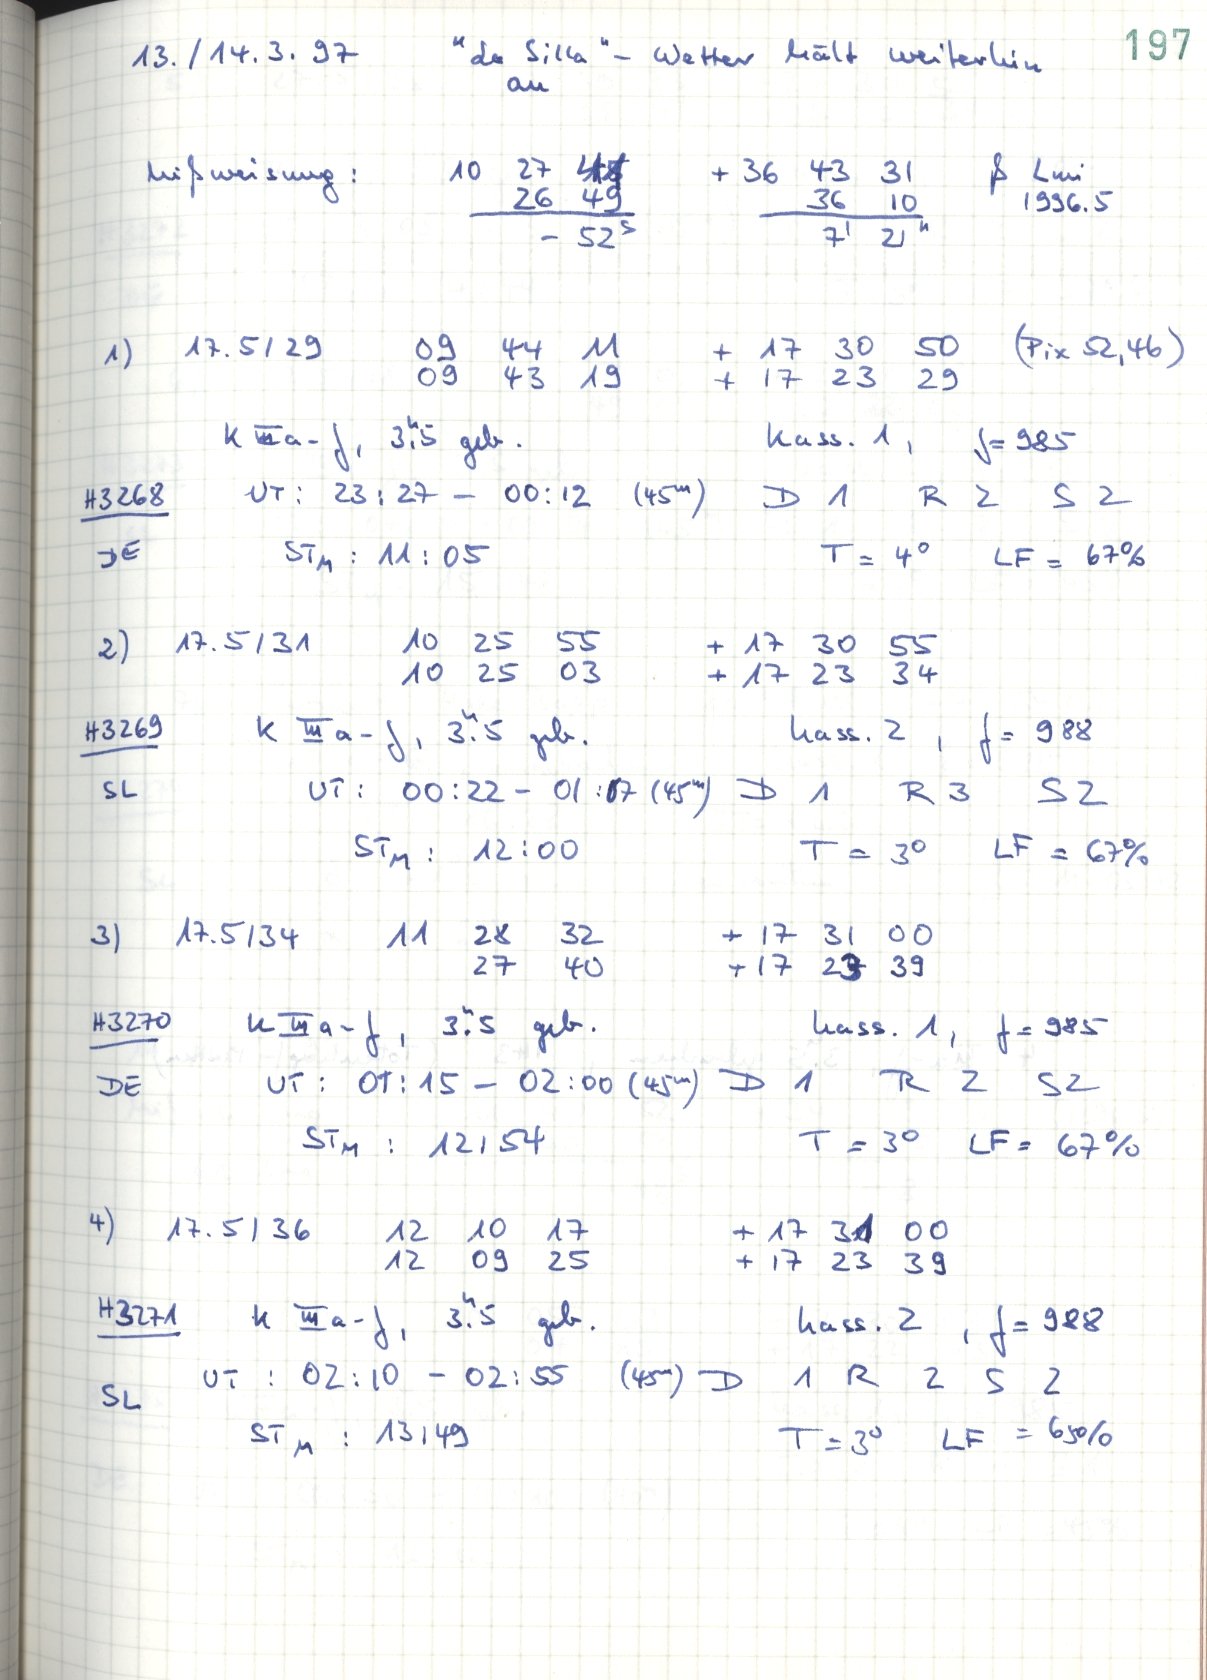 197
13./14.3.97 "da Silla" - Wetter hält weiterhin
an
Mißweisung: 10 27 41 + 36 43 31 β Lmi
26 49 36 10 1996.5
- 52ˢ 7' 21"
1) 17.5/29 09 44 11 + 17 30 50 (Pix 52,46)
09 43 19 + 17 23 29
K IIIa-J, 3.ʰ5 geb. Kass. 1, f=985
H3268 UT: 23:27 - 00:12 (45ᵐ) D 1 R 2 S 2
DE STM: 11:05 T = 4° LF = 67%
2) 17.5/31 10 25 55 + 17 30 55
10 25 03 + 17 23 34
H3269 K IIIa-J, 3.ʰ5 geb. Kass. 2, f=988
SL UT: 00:22 - 01:07 (45ᵐ) D 1 R 3 S 2
STM: 12:00 T = 3° LF = 67%
3) 17.5/34 11 28 32 + 17 31 00
27 40 + 17 23 39
H3270 K IIIa-J, 3.ʰ5 geb. Kass. 1, f=985
DE UT: 01:15 - 02:00 (45ᵐ) D 1 R 2 S 2
STM: 12:54 T = 3° LF = 67%
4) 17.5/36 12 10 17 + 17 31 00
12 09 25 + 17 23 39
H3271 K IIIa-J, 3.ʰ5 geb. Kass. 2, f=988
SL UT: 02:10 - 02:55 (45ᵐ) D 1 R 2 S 2
STM: 13:49 T = 3° LF = 65%